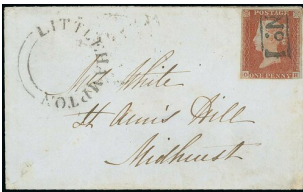 LITTLEHAMPTON
POSTAGE
No. 1
ONE PENNY
Mrs White
St Anns Hill
Midhurst